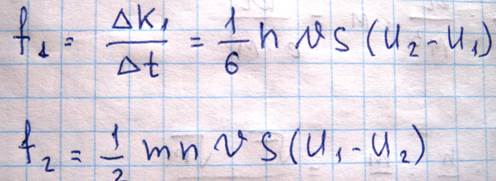 f₁ = ΔK₁/Δt = 1/6 n v S (U₂ - U₁)
f₂ = 1/2 m n v S (U₁ - U₂)